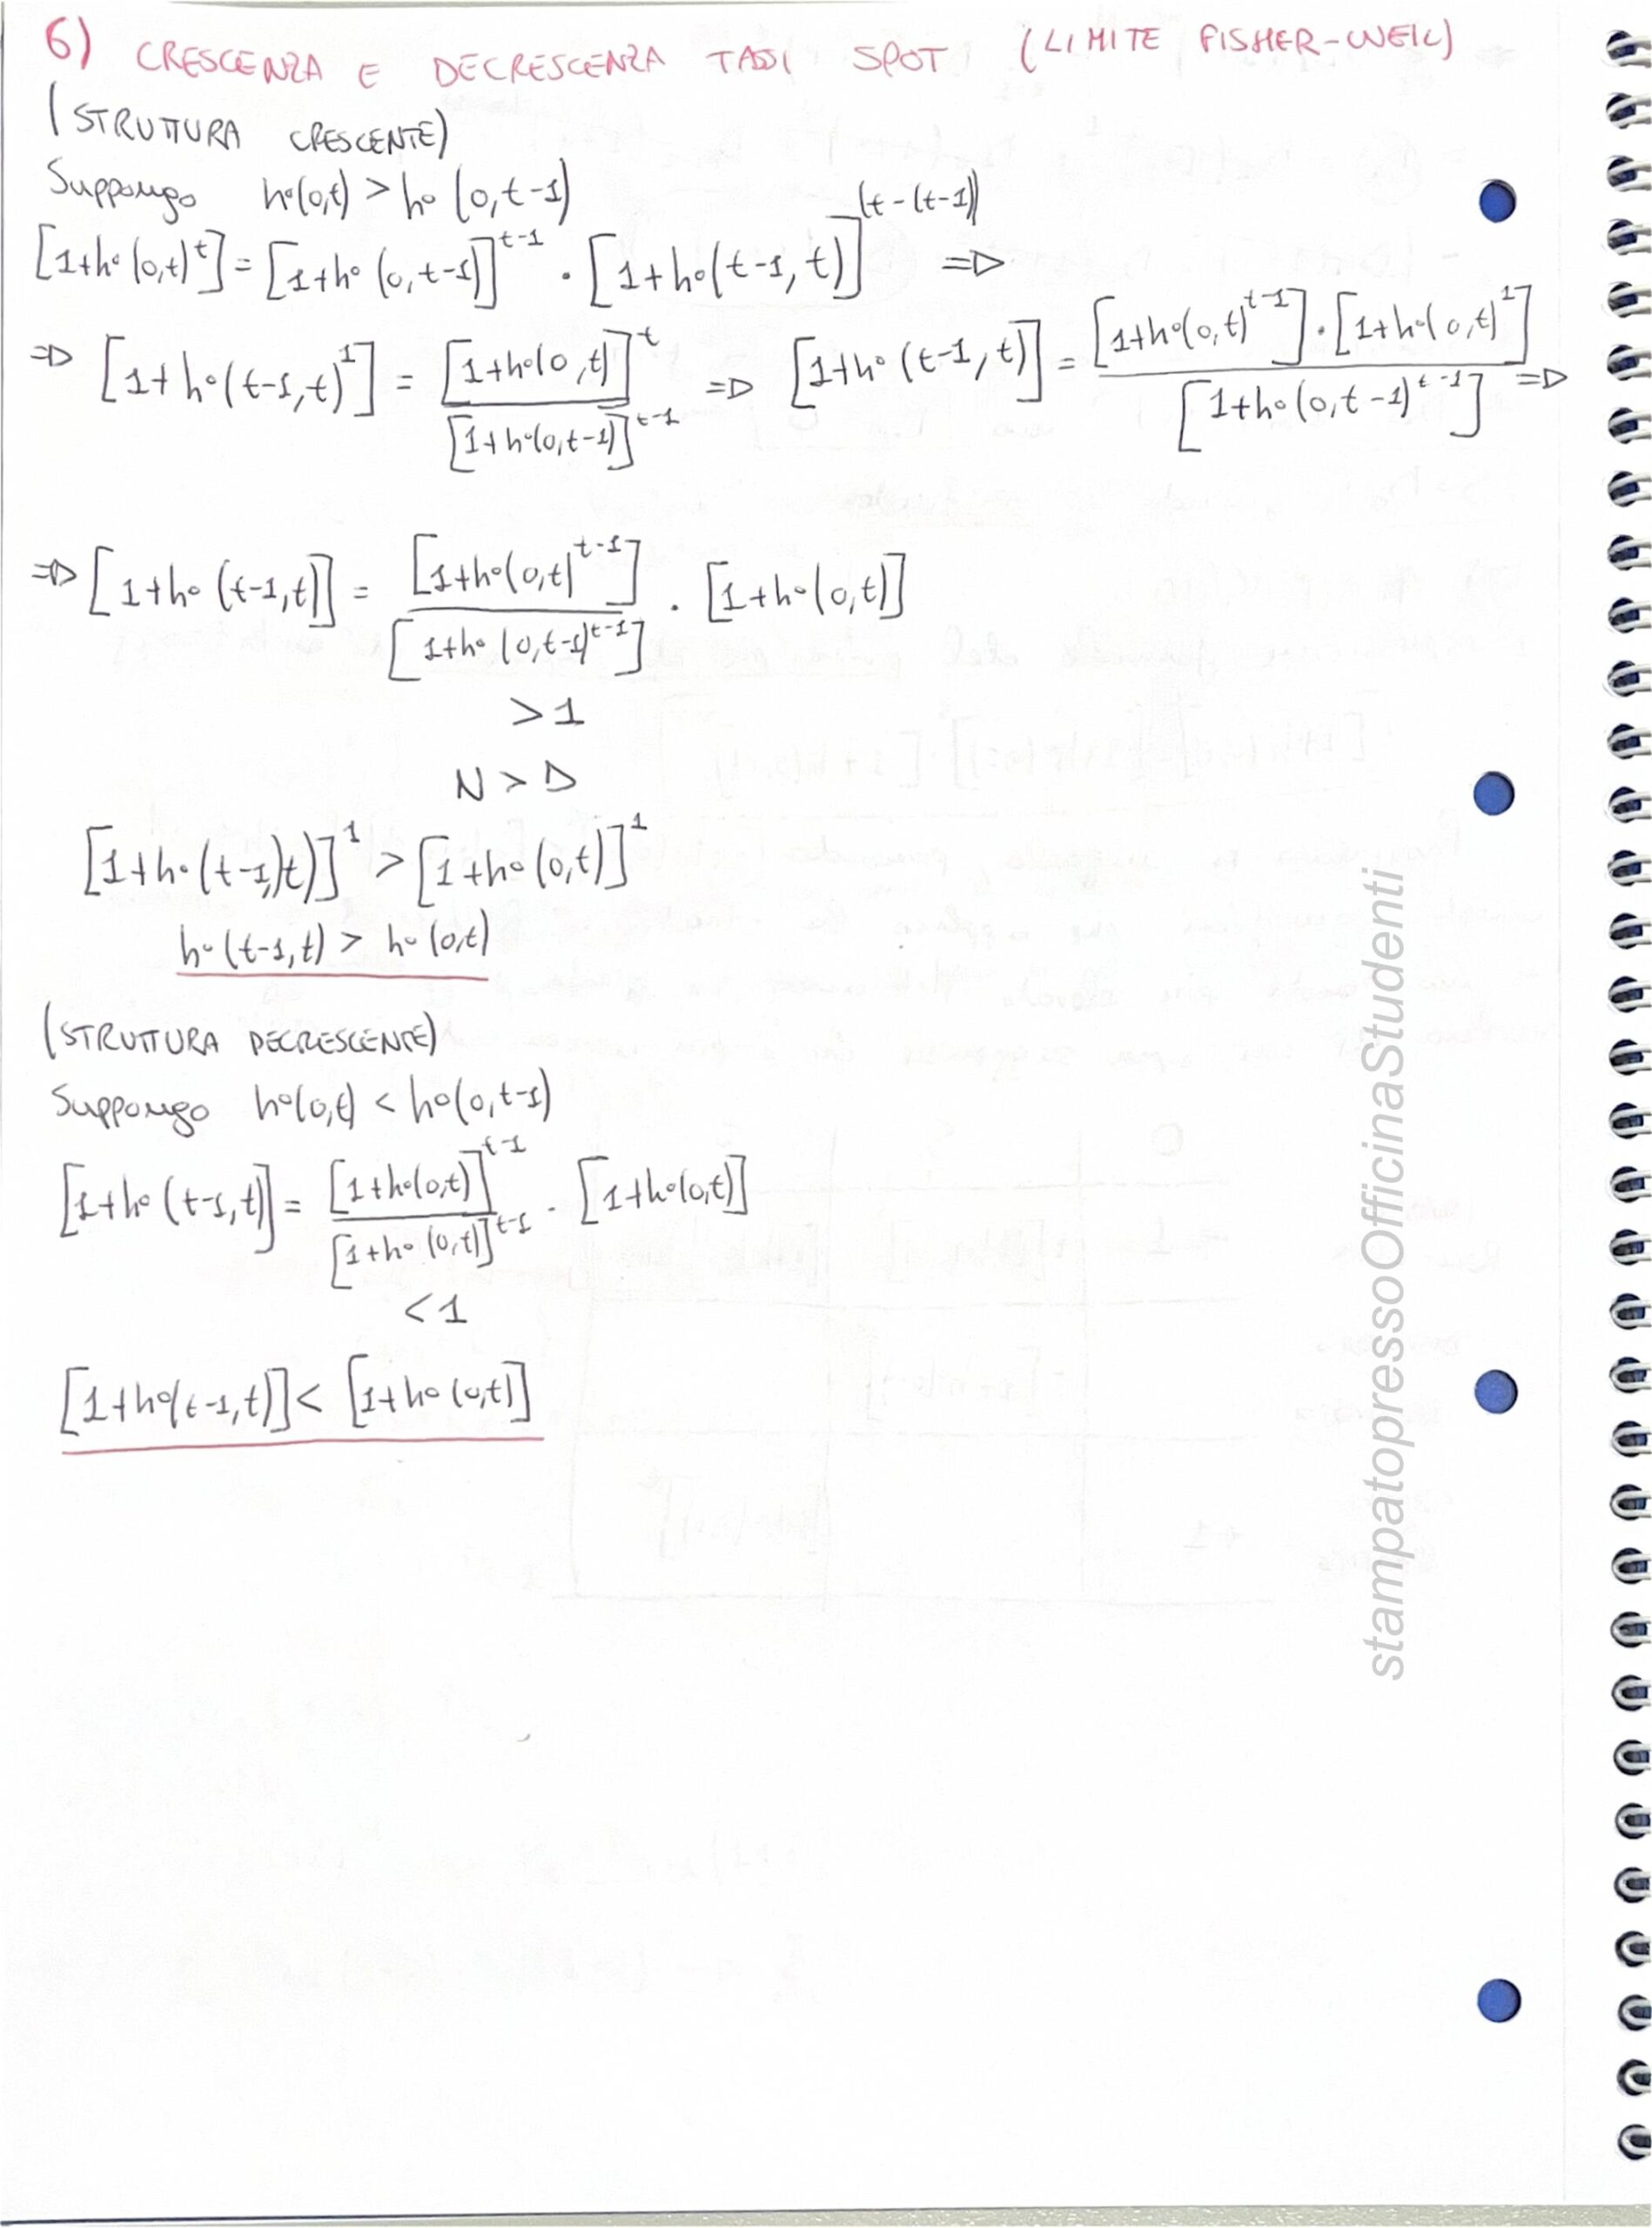 6) CRESCENZA E DECRESCENZA TASSI SPOT (LIMITE FISHER-WEIL)
(STRUTTURA CRESCENTE)
Suppongo h₀(0,t) > h₀ (0,t-1)
[1+h₀ (0,t)ᵗ] = [1+h₀ (0,t-1)]ᵗ⁻¹ · [1+h₀(t-1,t)]^(t-(t-1)) =>
=> [1+h₀(t-1,t)¹] = [1+h₀(0,t)]ᵗ / [1+h₀(0,t-1)]ᵗ⁻¹ => [1+h₀ (t-1,t)] = [1+h₀(0,t)ᵗ⁻¹] · [1+h₀(0,t)¹] / [1+h₀(0,t-1)ᵗ⁻¹] =>
=> [1+h₀ (t-1,t)] = [1+h₀(0,t)ᵗ⁻¹] / [1+h₀ (0,t-1)ᵗ⁻¹] · [1+h₀(0,t)]
>1
N > D
[1+h₀(t-1,t)]¹ > [1+h₀(0,t)]¹
h₀(t-1,t) > h₀(0,t)
(STRUTTURA DECRESCENTE)
Suppongo h₀(0,t) < h₀(0,t-1)
[1+h₀ (t-1,t)] = [1+h₀(0,t)]ᵗ⁻¹ / [1+h₀ (0,t)]ᵗ⁻¹ · [1+h₀(0,t)]
<1
[1+h₀(t-1,t)] < [1+h₀(0,t)]
stampatopressoOfficinaStudenti